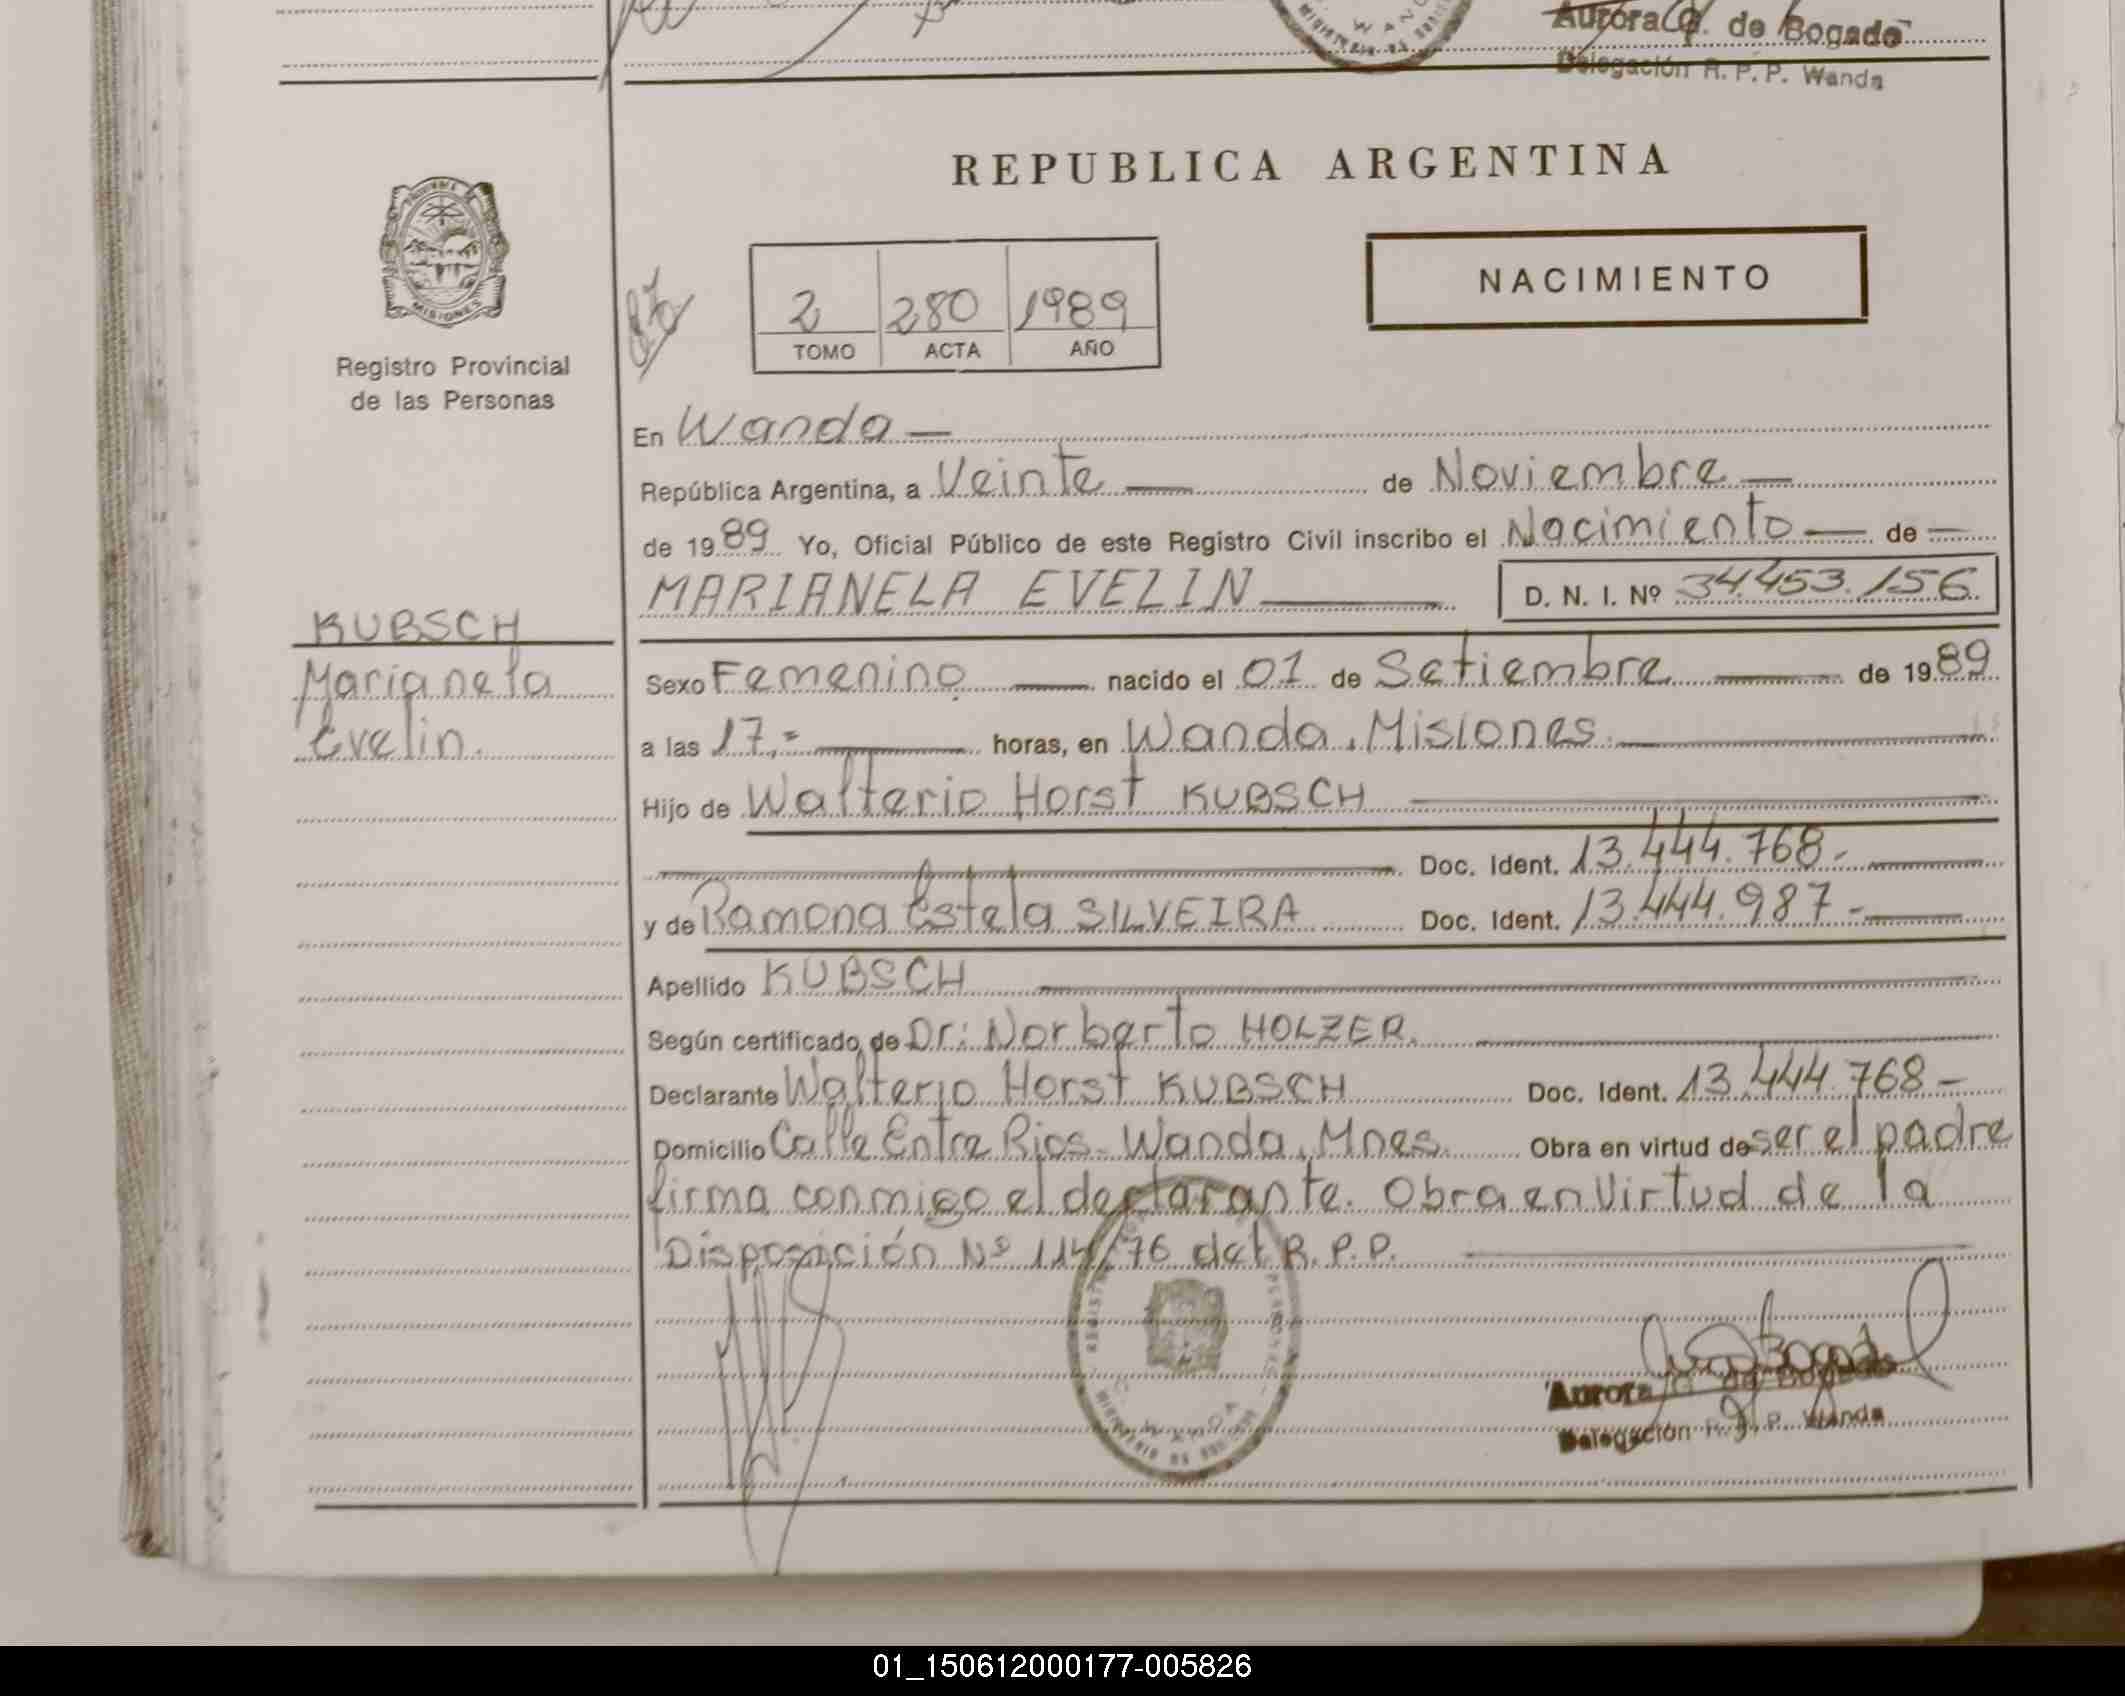 Aurora G. de Bogado
Delegación R. P. P. Wanda
REPUBLICA ARGENTINA
NACIMIENTO
2 280 1989
TOMO ACTA AÑO
MISIONES
Registro Provincial
de las Personas
En Wanda —
República Argentina, a Veinte — de Noviembre —
de 1989 Yo, Oficial Público de este Registro Civil inscribo el Nacimiento — de —
MARIANELA EVELIN — D. N. I. Nº 34.453.156
KUBSCH
Marianela
Evelin.
Sexo Femenino — nacido el 01 de Setiembre — de 1989
a las 17,= — horas, en Wanda, Misiones. —
Hijo de Walterio Horst KUBSCH —
— Doc. Ident. 13.444.768.- —
y de Ramona Estela SILVEIRA Doc. Ident. 13.444.987- —
Apellido KUBSCH —
Según certificado de Dr: Norberto HOLZER. —
Declarante Walterio Horst KUBSCH Doc. Ident. 13.444.768-
Domicilio Calle Entre Rios. Wanda, Mnes. Obra en virtud de ser el padre
firma conmigo el declarante. Obra en Virtud de la
Disposición Nº 114/76 del R.P.P. —
WANDA
Aurora G. de Bogado
Delegación R. P. P. Wanda
01_150612000177-005826